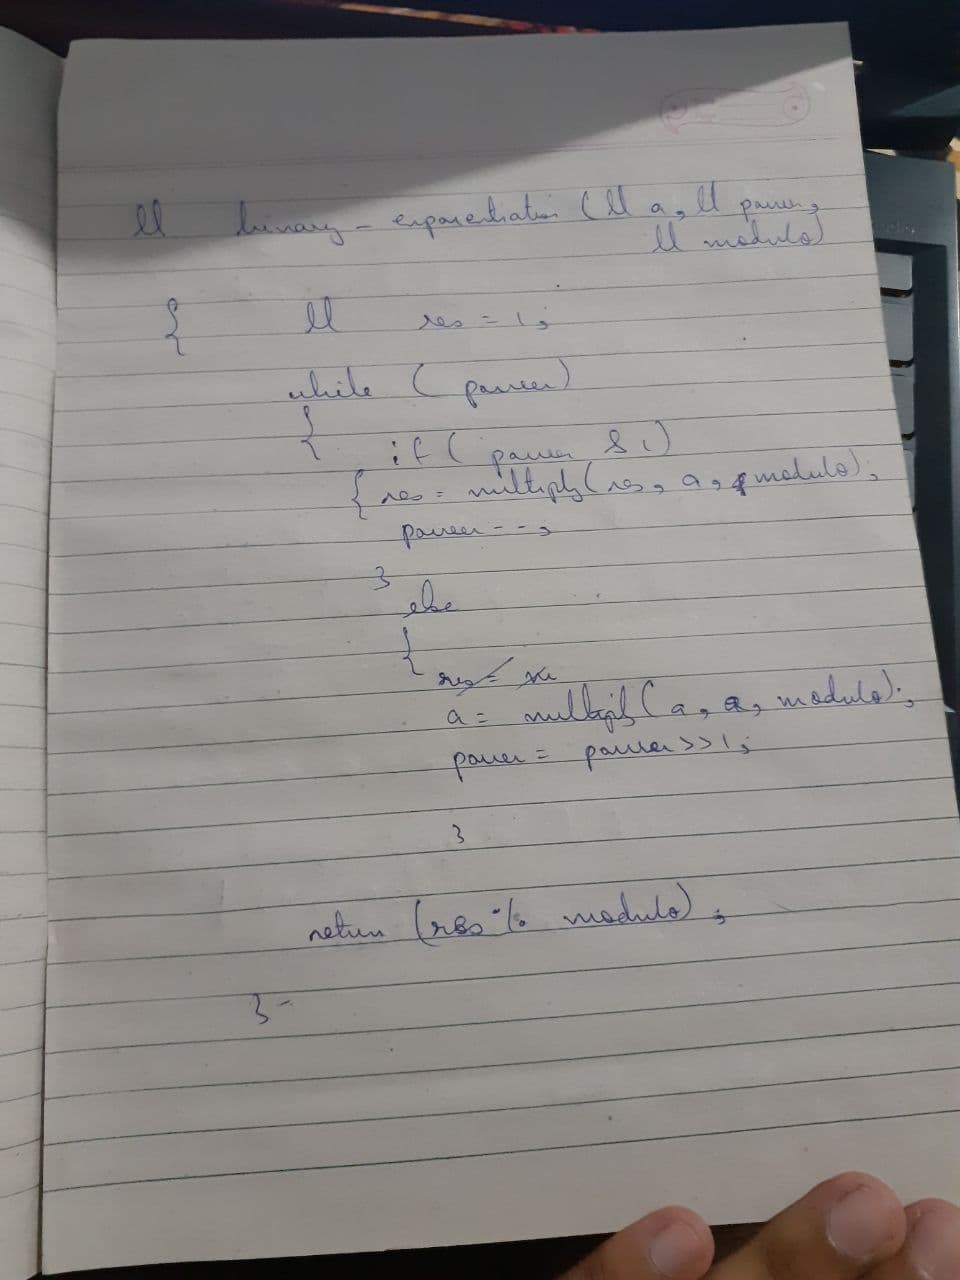 ll binary-exponentiation (ll a, ll power,
ll modulo)
{ ll res = 1;
while (power)
{
if (power & 1)
{ res = multiply(res, a, modulo);
power--;
}
else
{
res =
a = multiply(a, a, modulo);
power = power>>1;
}
return (res % modulo);
}